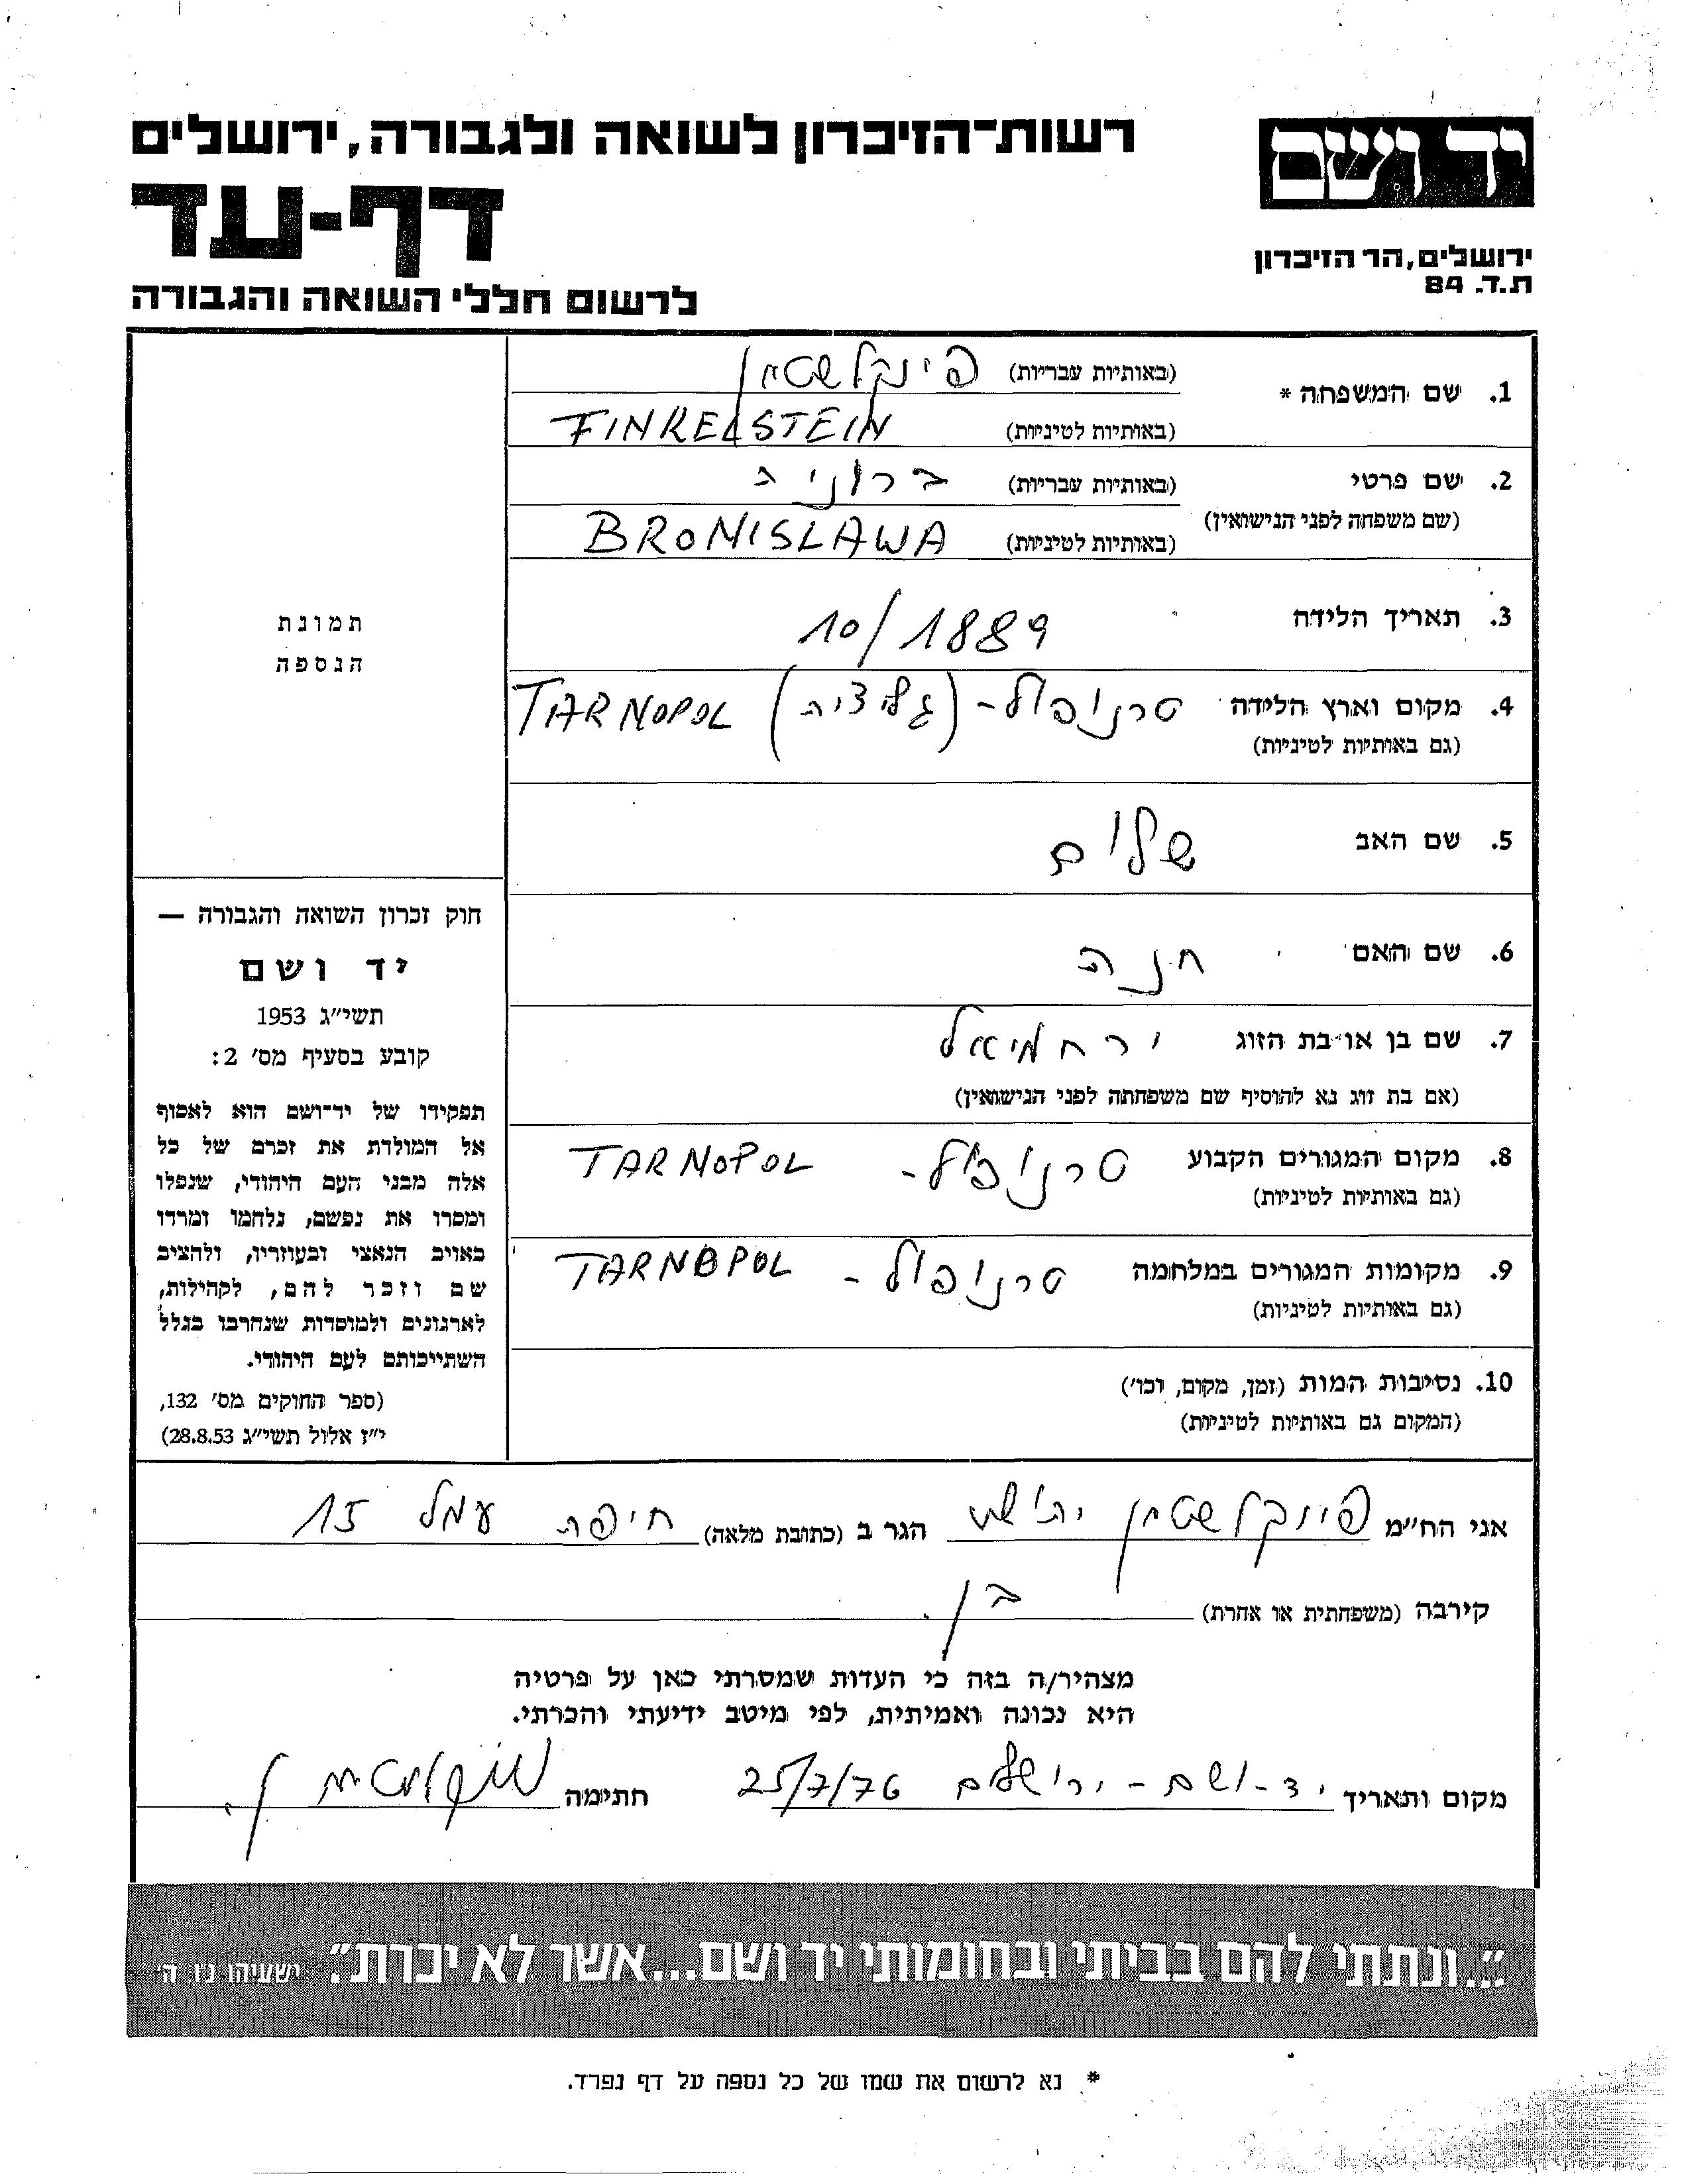 יד ושם
ירושלים, הר הזיכרון
ת.ד. 84
רשות-הזיכרון לשואה ולגבורה, ירושלים
דף-עד
לרשום חללי השואה והגבורה
1. שם המשפחה * (באותיות עבריות) פינקלשטיין
(באותיות לטיניות) FINKELSTEIN
2. שם פרטי (באותיות עבריות) ברוניה
(שם משפחה לפני הנישואין) (באותיות לטיניות) BRONISLAWA
3. תאריך הלידה 10/1889
4. מקום וארץ הלידה טרנופול - (גליציה) TARNOPOL
(גם באותיות לטיניות)
5. שם האב שלום
6. שם האם חנה
7. שם בן או בת הזוג ירחמיאל
(אם בת זוג נא להוסיף שם משפחתה לפני הנישואין)
8. מקום המגורים הקבוע טרנופול - TARNOPOL
(גם באותיות לטיניות)
9. מקומות המגורים במלחמה טרנופול - TARNOPOL
(גם באותיות לטיניות)
10. נסיבות המות (זמן, מקום, וכו')
(המקום גם באותיות לטיניות)
תמונת
הנספה
חוק זכרון השואה והגבורה —
יד ושם
תשי"ג 1953
קובע בסעיף מס' 2:
תפקידו של יד-ושם הוא לאסוף
אל המולדת את זכרם של כל
אלה מבני העם היהודי, שנפלו
ומסרו את נפשם, נלחמו ומרדו
באויב הנאצי ובעוזריו, ולהציב
שם וזכר להם, לקהילות,
לארגונים ולמוסדות שנחרבו בגלל
השתייכותם לעם היהודי.
(ספר החוקים מס' 132,
י"ז אלול תשי"ג 28.8.53)
אני הח"מ פינקלשטיין הגר ב (כתובת מלאה) חיפה עמל 15
קירבה (משפחתית או אחרת) בן
מצהיר/ה בזה כי העדות שמסרתי כאן על פרטיה
היא נכונה ואמיתית, לפי מיטב ידיעתי והכרתי.
מקום ותאריך יד-ושם - ירושלים 25/7/76 חתימה
"...ונתתי להם בביתי ובחומותי יד ושם...אשר לא יכרת". ישעיהו נו ה
* נא לרשום את שמו של כל נספה על דף נפרד.